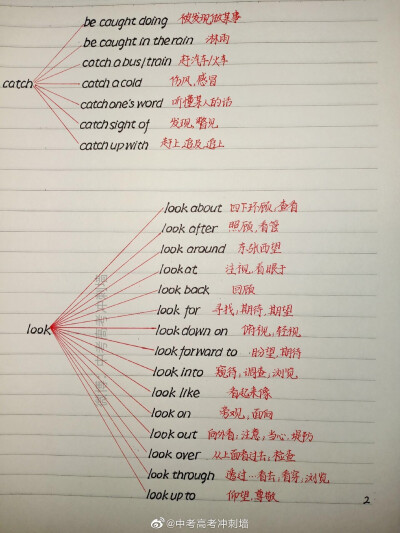 be caught doing 被发现做某事
be caught in the rain 淋雨
catch a bus/train 赶汽车/火车
catch
catch a cold 伤风,感冒
catch one's word 听懂某人的话
catch sight of 发现,瞥见
catch up with 赶上,追及,追上
look about 四下环顾,查看
look after 照顾,看管
look around 东张西望
look at 注视,着眼于
look back 回顾
look for 寻找,期待,期望
look
look down on 俯视,轻视
look forward to 盼望,期待
look into 窥视,调查,浏览
look like 看起来像
look on 旁观,面向
look out 向外看,注意,当心,堤防
look over 从上面看过去,检查
look through 透过…看去,看穿,浏览
look up to 仰望,尊敬
2
@中考高考冲刺墙